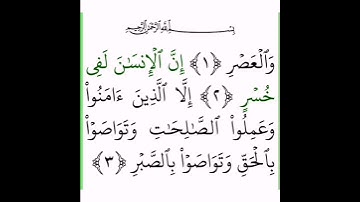 بِسْمِ اللَّهِ الرَّحْمَٰنِ الرَّحِيمِ
وَالْعَصْرِ ﴿١﴾ إِنَّ الْإِنسَـٰنَ لَفِى
خُسْرٍ ﴿٢﴾ إِلَّا الَّذِينَ ءَامَنُوا۟
وَعَمِلُوا۟ الصَّـٰلِحَـٰتِ وَتَوَاصَوْا۟
بِالْحَقِّ وَتَوَاصَوْا۟ بِالصَّبْرِ ﴿٣﴾